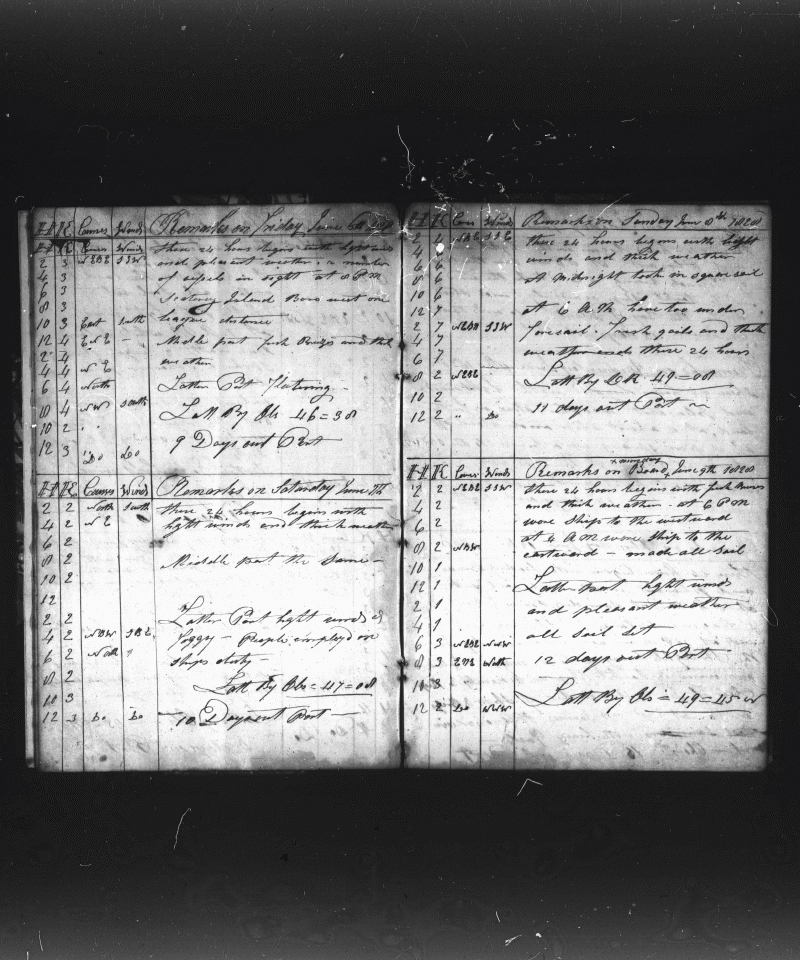 H H K Courses Winds Remarks on Friday June 6th
H H K Courses Winds these 24 hours begins with light winds
2 3 NEBE SSW and pleasant weather a number
4 3 of vessels in sight at 8 PM
6 3
8 3 Scatary Island Bore west one
10 3 East South league distance
12 4 ENE – Middle part fresh Breezes and thick
2 4 weather
4 4 NE
6 4 North Latter Part flatering –
8 4 NW South Latt By Obs 46=38
10 2 " "
12 3 Do Do 9 Days out Port
H H K Courses Winds Remarks on Saturday June 7th
2 2 North South these 24 hours begins with
4 2 NE light winds and thick weather
6 2
8 2 Middle part the Same –
10 2
12
2 2 Latter Part light winds &
4 2 NBW SBE foggy – People employd on
6 2 North " ships duty –
8 2 Latt By Obs = 47=08
10 3
12 3 Do Do – 10 Days out Port –
H H K Cours Winds Remarks on Sunday June 8th 1828
2 6 NEBE SSE these 24 hours begins with light
4 6 winds and thick weather
6 6
8 6 At Midnight took in square sail
10 6
12 7 at 6 AM hove too under
2 7 NEBN SSW foresail. fresh gails and thick
4 7
6 7 weather ends these 24 hours
8 2 NEBE Latt By DR 49=08
10 2
12 2 " Do 11 days out Port
H H K Cours Winds Remarks on Board, Monday June 9th 1828
2 2 NEBE SSW these 24 hours begins with fresh breezes
4 2 and thick weather. at 6 PM
6 2 wore ship to the westward
8 2 NBW at 4 AM wore ship to the
10 1 eastward – made all sail
12 1 Latter part light winds
2 1 and pleasant weather
4 1
6 3 NEBE NNW all sail set
8 3 ENE North 12 days out Port
10 3
12 2 Do WNW Latt By Obs = 49=45 N